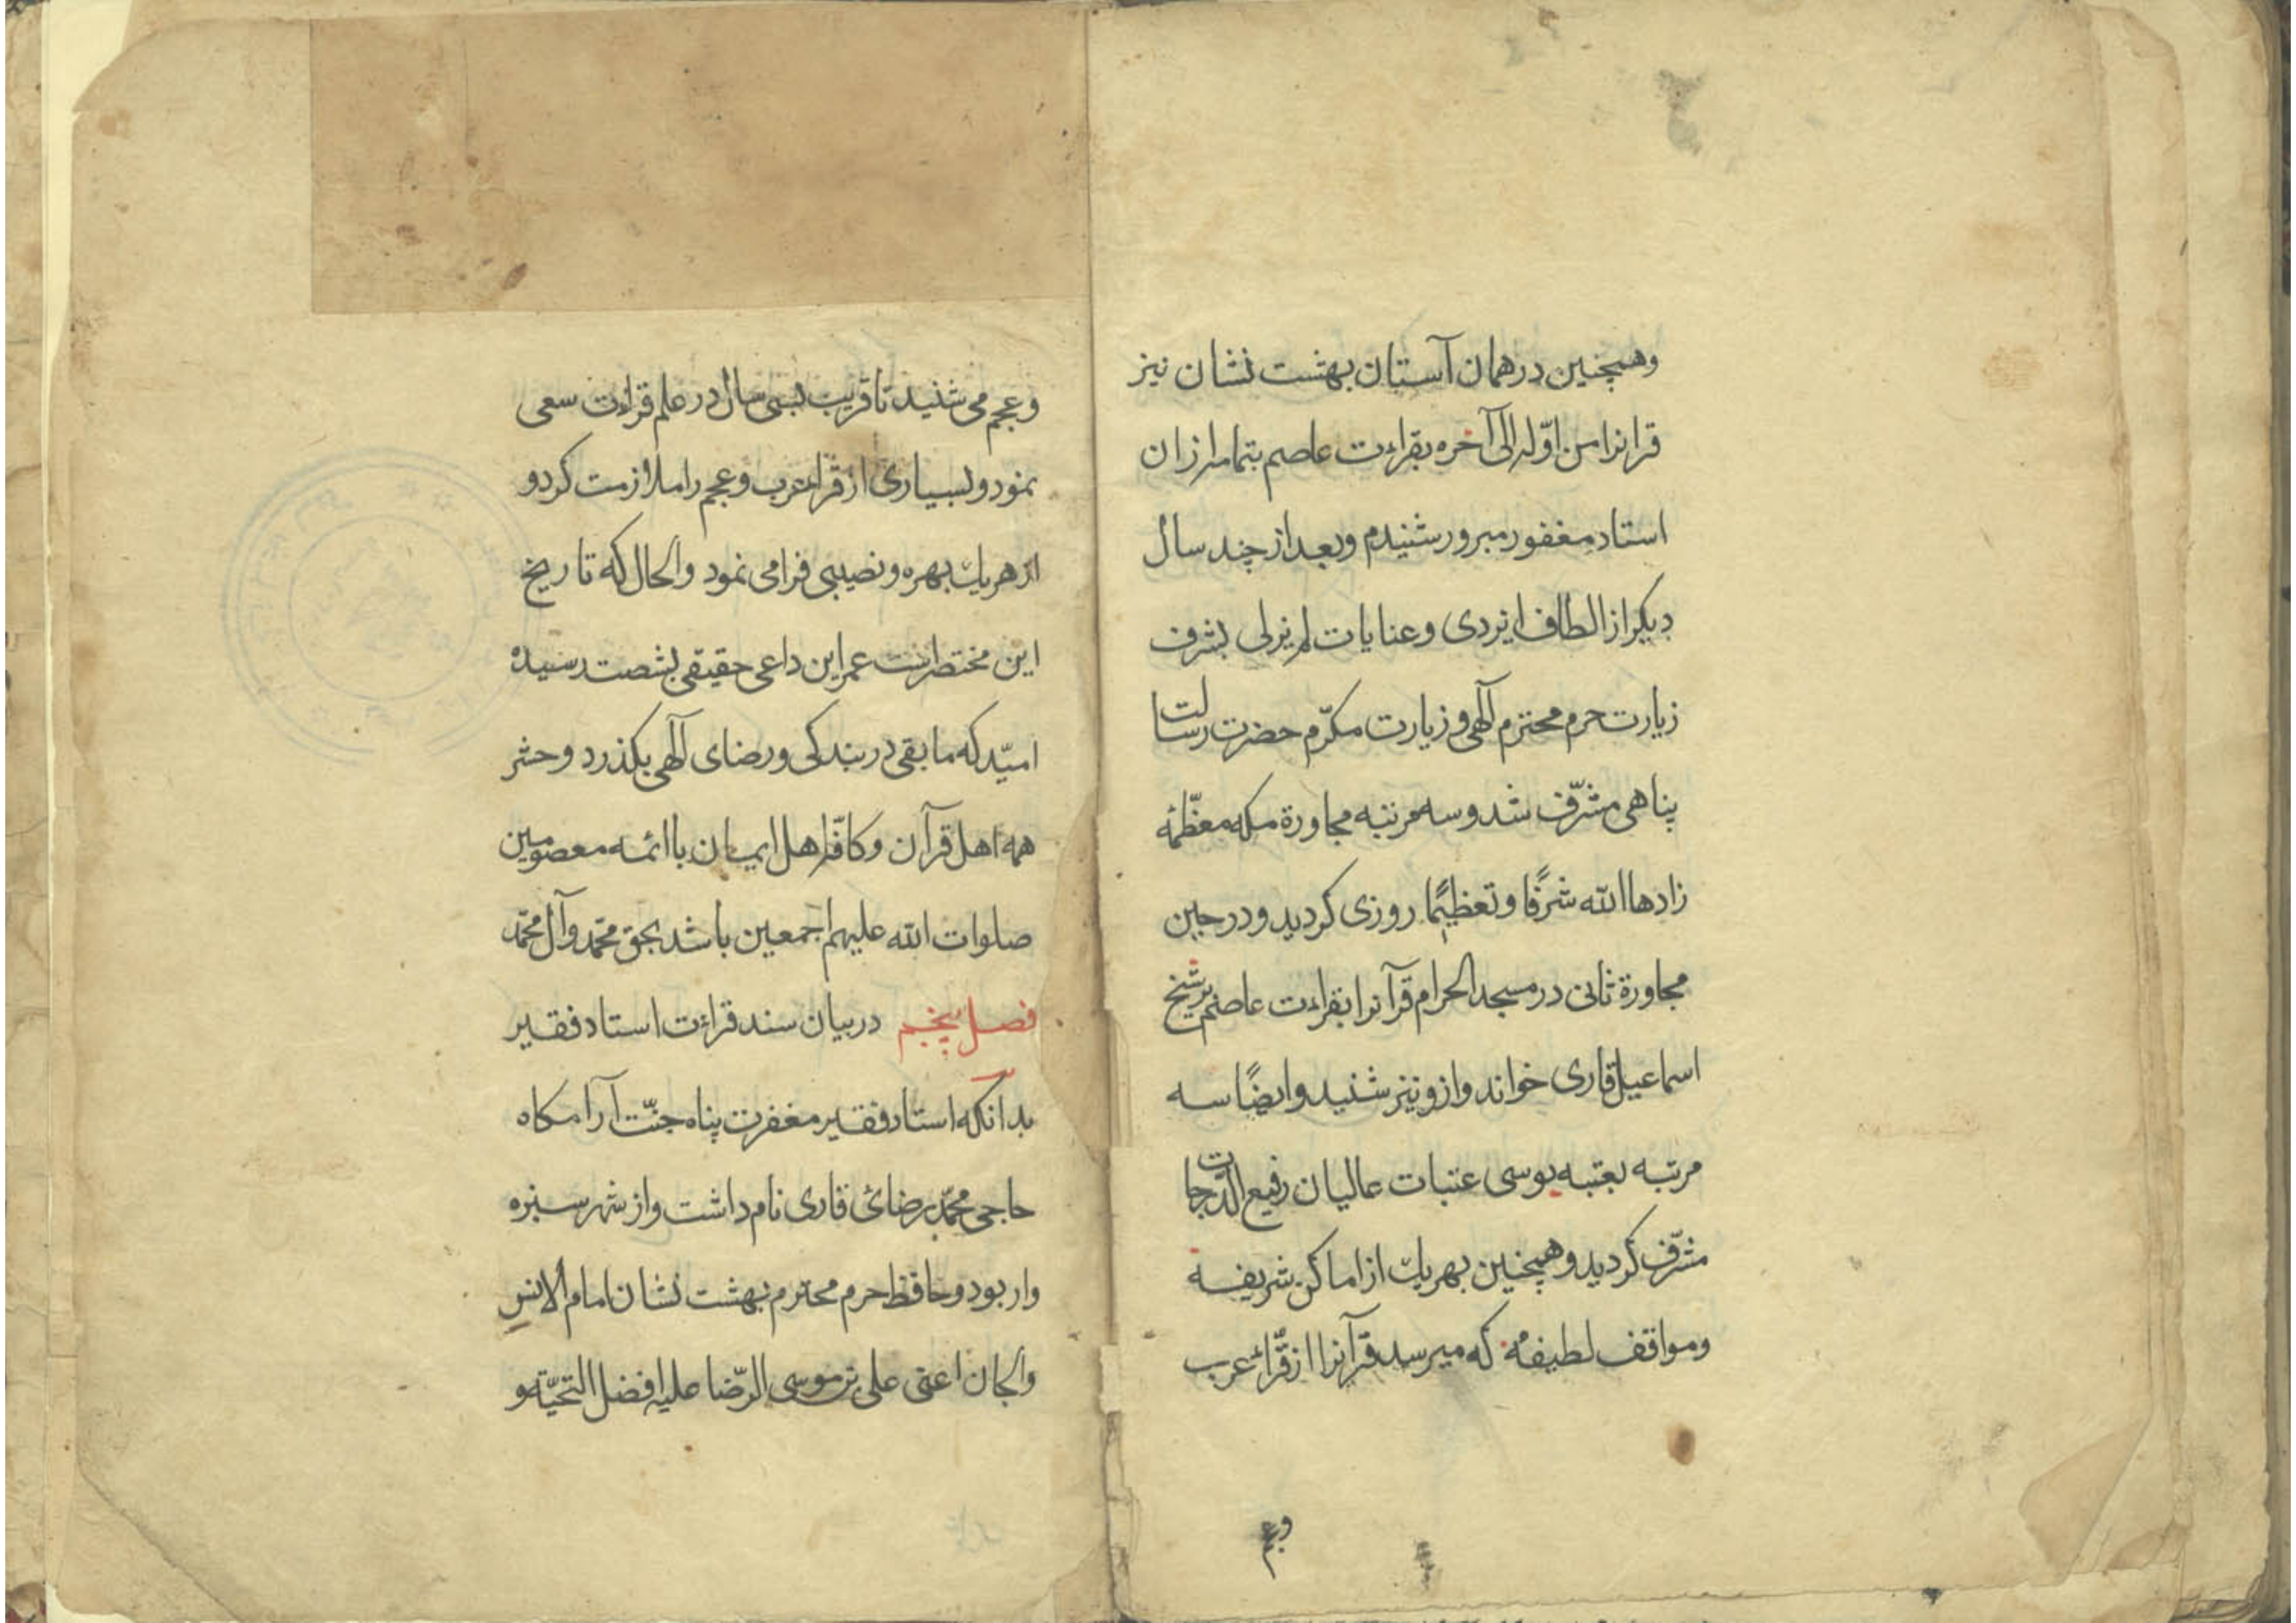 وهمچنین در همان آستان بهشت نشان نیز
قرانرا من اوّله الی آخره بقراءت عاصم بتمامه ازان
استاد مغفور مبرور شنیدم وبعد از چند سال
دیکر از الطاف ایزدی وعنایات لم یزلی بشرف
زیارت حرم محترم آلٓهی و زیارت مکرّم حضرت رسالت
پناهی مشرّف شد وسه مرتبه مجاورة مکه معظّمه
زادها الله شرفًا وتعظیمًا روزی کردید ودر حین
مجاورة ثانی در مسجد الحرام قرآنرا بقراءت عاصم بر شیخ
اسماعیل قاری خواند وازو نیز شنید وایضًا سه
مرتبه بعتبه بوسی عتبات عالیان رفیع الدّرجات
مشرّف کردید وهمچنین بهریك از اماکن شریفه
ومواقف لطیفه که میرسد قرآنرا از قرّاء عرب
وعجم
وعجم می شنید تا قریب بسی سال در علم قراءت سعی
نمود وبسیاری از قراء عرب وعجم را ملازمت کرد و
از هریك بهره ونصیبی فرا می نمود والحال که تاریخ
این مختصر است عمر این داعی حقیقی بشصت رسیده
امیّد که مابقی در بندکی ورضای آلٓهی بکذرد وحشر
همه اهل قرآن وکافّه اهل ایمان با ائمه معصومین
صلوات الله علیهم اجمعین باشد بحق محمّد وآل محمّد
فصل پنجم در بیان سند قراءت استاد فقیر
بدانکه استاد فقیر مغفرت پناه جنّت آرامکاه
حاجی محمّد رضائی قاری نام داشت واز شهر سبزه
وار بود وحافظ حرم محترم بهشت نشان امام الانسِ
والجان اعنی علی بن موسی الرّضا علیه افضل التحیّة و